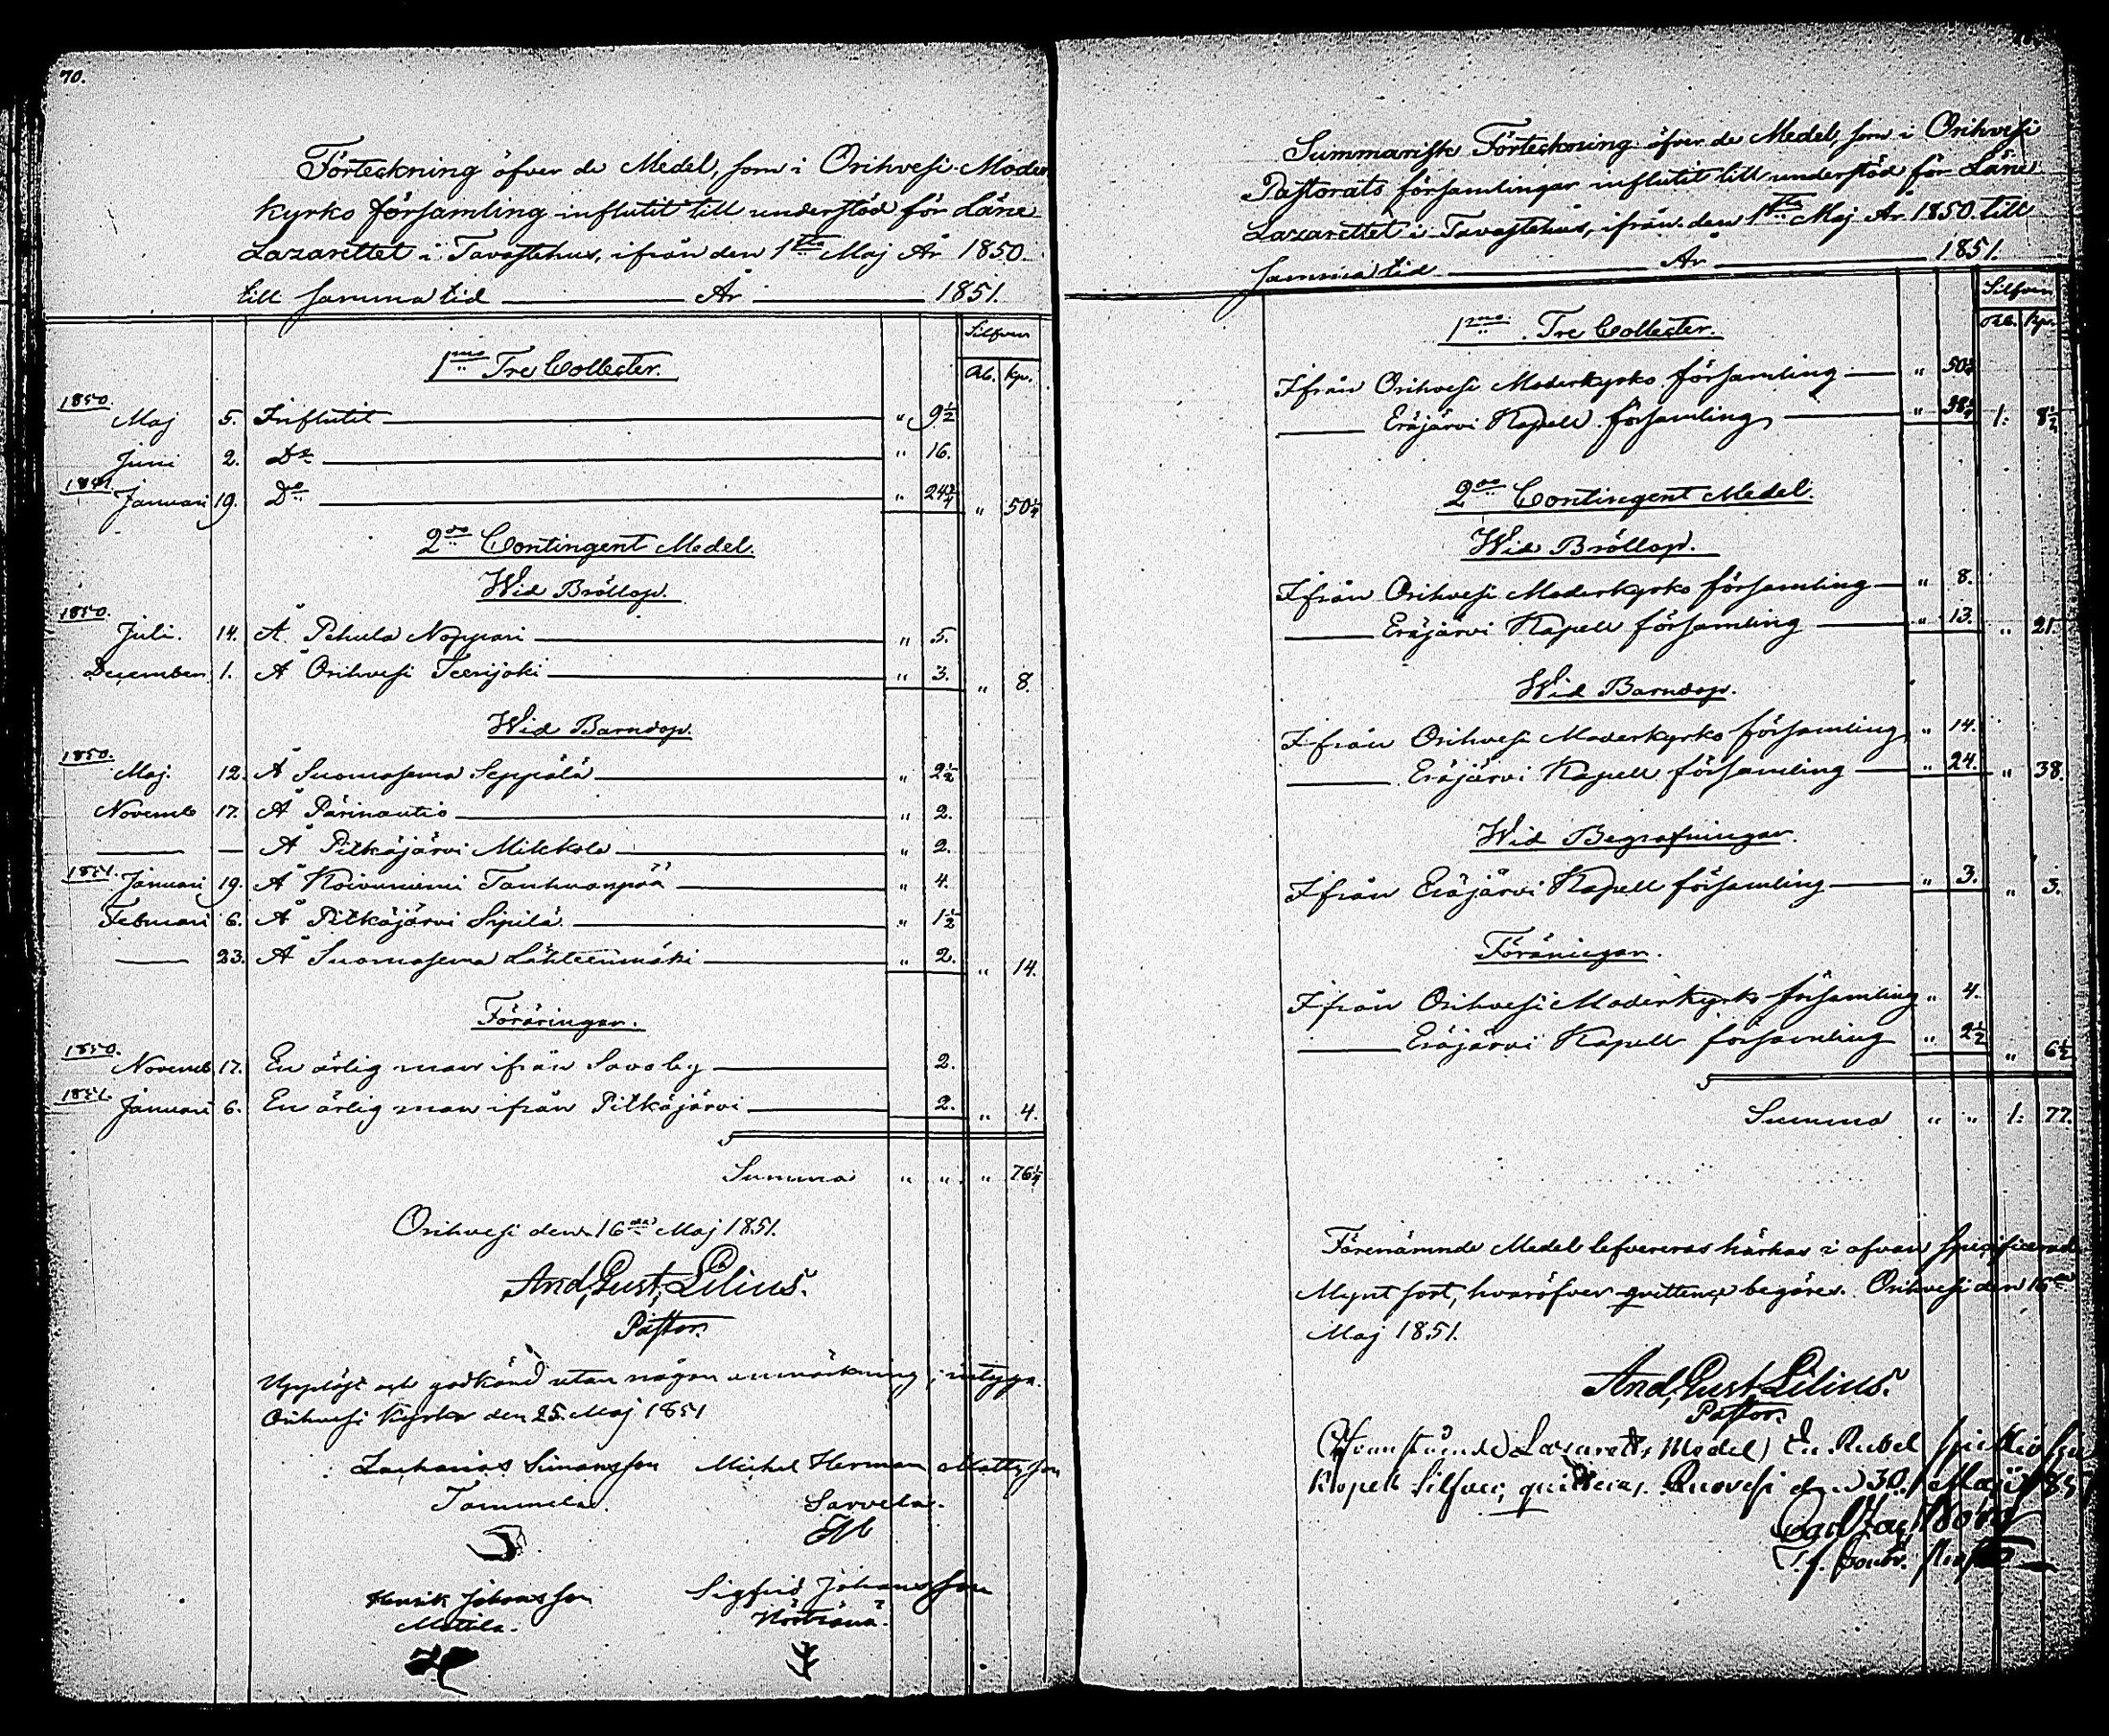 70.
Förteckning öfver de Medel, som i Orihvesi Moder
Kyrko församling influtit till understöd för Läne
Lazarettet i Tavastehus, ifrån den 1sta Maj År 1850.
till samma tid ——— År ——— 1851.
Silfver
1mo Tre Collecter. Rb. kp.
1850.
Maj 5. Influtit " 9 1/2
Juni 2. Do " 16.
1851.
Januari 19. Do " 24 3/4 " 50 1/4
2do Contingent Medel.
Wid Bröllop.
1850.
Juli. 14. Å Pehula Noppari " 5.
December 1. Å Orihvesi Teerijoki " 3. " 8.
Wid Barndop.
1850.
Maj. 12. Å Suomasema Seppälä " 2 1/2
Novemb 17. Å Pärinautio " 2.
—— — Å Pitkäjärvi Mikkola " 2.
1851.
Januari 19. Å Koivuniemi Tanhuanpää " 4.
Februari 6. Å Pitkäjärvi Sipilä " 1 1/2
—— 23. Å Suomasema Lähteenmäki " 2. " 14.
Föräringar.
1850.
Novemb. 17. En ärlig man ifrån Savo by 2.
1851.
Januari 6. En ärlig man ifrån Pitkäjärvi 2. " 4.
Summa " " " 76 1/4
Orihvesi den 16de Maj 1851.
And. Gust. Lilius.
Pastor.
Uppläst och godkänd utan någon anmärkning, intyga.
Orihvesi Kyrka den 25. Maj 1851
Zacharias Simonsson Michel Herman Mattsson
Tommela. Sarvela.
Henrik Johansson Sigfrid Johansson
Mattila.
Summarisk Förteckning öfver de Medel, som i Orihvesi
Pastorats församlingar influtit till understöd för Läne
Lazarettet i Tavastehus, ifrån den 1sta Maj År 1850. till
samma tid ——— År ——— 1851.
Silfver
1mo. Tre Collecter. Rb. kp.
Ifrån Orihvesi Moderkyrko församling " 50 1/4
—— Eräjärvi Kapell församling " 38 1/4 1. 8 1/2
2do Contingent Medel.
Wid Bröllop.
Ifrån Orihvesi Moderkyrko församling " 8.
—— Eräjärvi Kapell församling " 13. " 21.
Wid Barndop.
Ifrån Orihvesi Moderkyrko församling " 14.
—— Eräjärvi Kapell församling " 24. " 38.
Wid Begrafningar.
Ifrån Eräjärvi Kapell församling " 3. " 3.
Föräringar.
Ifrån Orihvesi Moderkyrko församling " 4.
—— Eräjärvi Kapell församling " 2 1/2 " 6 1/2
Summa " " 1. 77.
Förenämnde Medel lefvereras härhos i ofvan specificerade
Mynt sort, hvaröfver qvittence begäres. Orihvesi den 16de
Maj 1851.
And. Gust. Lilius.
Pastor.
Ofvanstående Lazaretts Medel En Rubel sjuttio sju
Kopek Silfver, quitteras. Ruovesi den 30. Maji 185